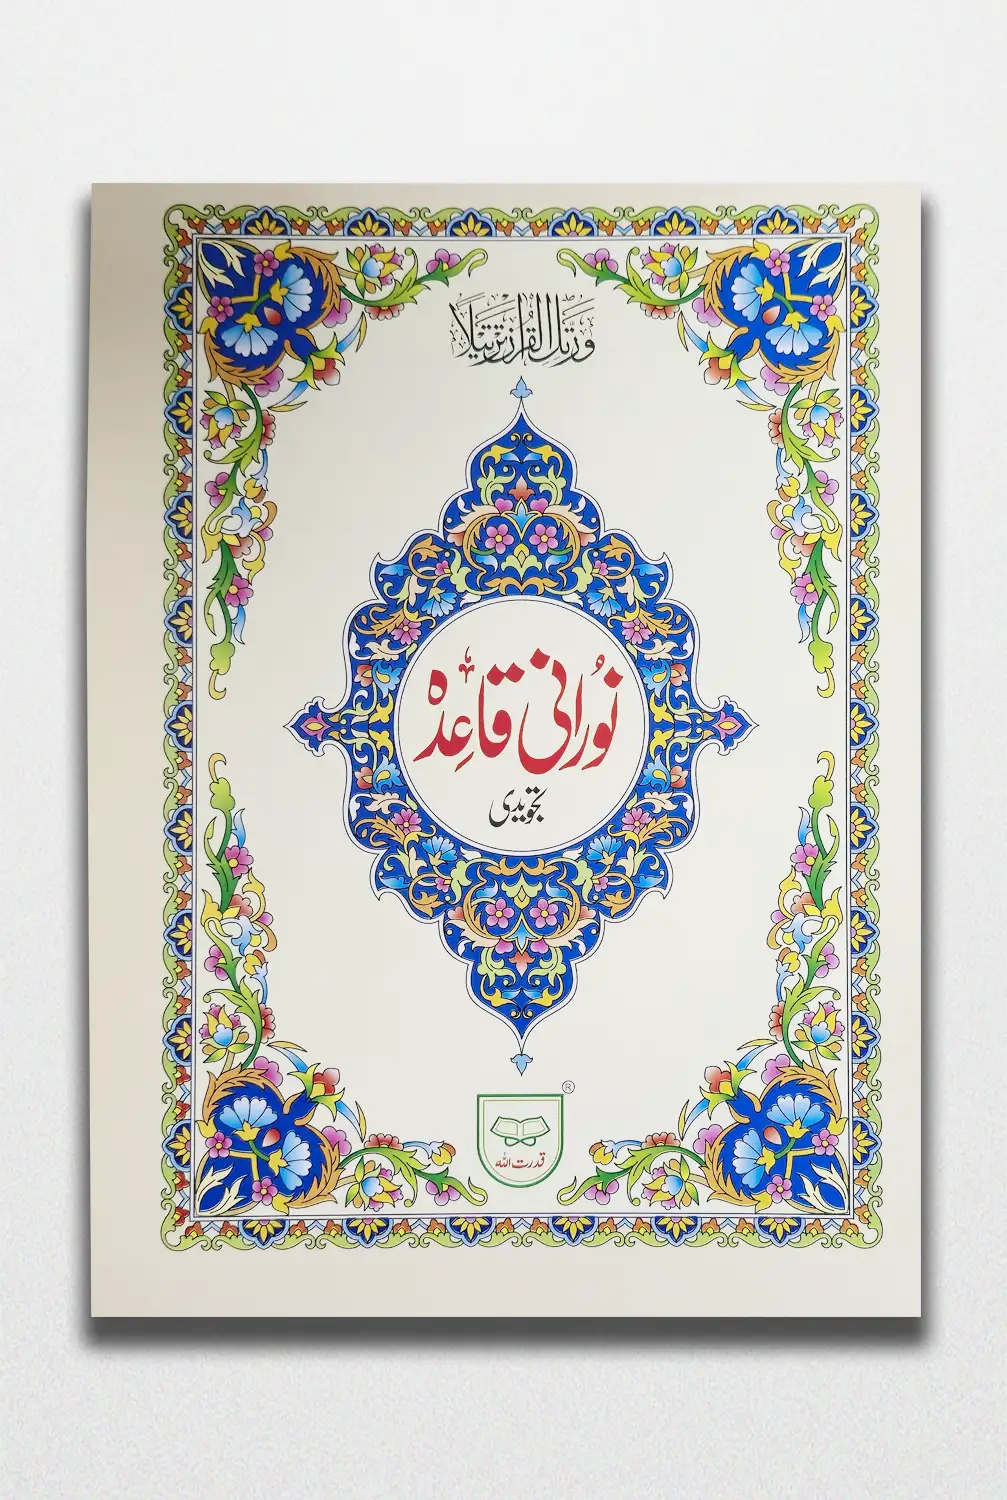 وَرَتِّلِ الْقُرْاٰنَ تَرْتِيْلًا
نُورانی قاعِدہ
تجویدی
®
قدرت اللہ